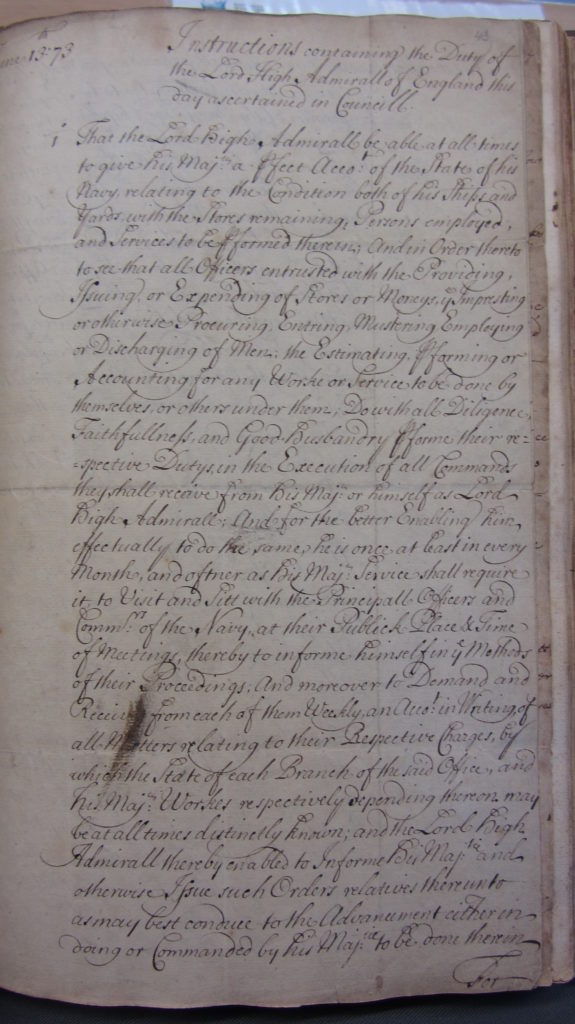 43
June 13th 73
Instructions containing the Duty of
the Lord High Admirall of England this
day ascertained in Councill.
1 That the Lord High Admirall be able at all times
to give his Maj.tie a pfect Acco.t of the State of his
Navy, relating to the Condition both of his Ships and
Yards, with the Stores remaining, Persons employed,
and Services to be pformed therein; And in Order thereto
to see that all Officers entrusted with the Providing,
Issuing, or Expending of Stores or Moneys, ye Impresting
or otherwise Procuring, Entring, Mustering Employing
or Discharging of Men; the Estimating, pforming or
Accounting for any Worke or Service to be done by
themselves, or others under them; Do with all Diligence,
Faithfullness, and Good Husbandry pforme their re=
=spective Dutys, in the Execution of all Commands
they shall receive from his Maj.tie or himself as Lord
High Admirall; And for the better Enabling him
effectually to do the same, he is once at least in every
Month, and oftner as his Maj.ts Service shall require
it, to Visit and Sitt with the Principall Officers and
Comm.rs of the Navy, at their Publick Place & Time
of Meetings, thereby to informe himself in ye Methods
of their Proceedings; And moreover to Demand and
Receive from each of them Weekly, an Acco.t in Writing, of
all Matters relating to their Respective Charges, by
which the State of each Branch of the said Office, and
his Maj.ts Workes respectively depending thereon may
be at all times distinctly known; and the Lord High
Admirall thereby enabled to Informe his Maj.tie and
otherwise Issue such Orders relatives thereunto
as may best conduce to the Advancement either in
doing or Commanded by his Maj.tie to be done therein
For